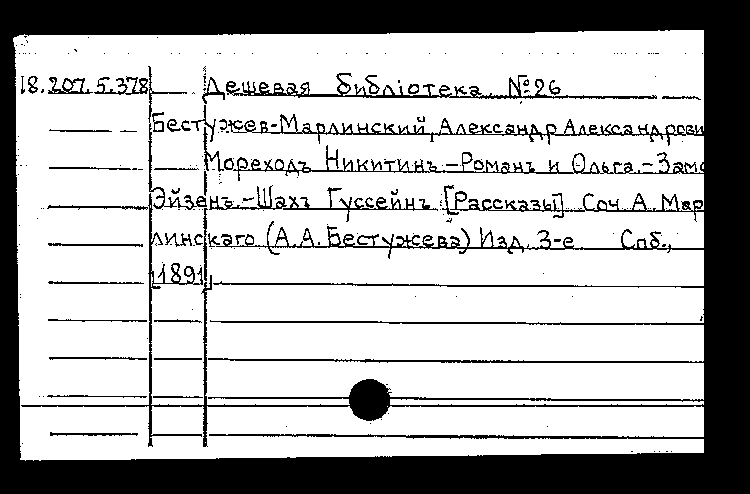 18.207.5.378 Дешевая библіотека №26
Бестужев-Марлинский, Александр Александрови
Мореходъ Никитинъ.-Романъ и Ольга.-Замо
Эйзенъ.-Шахъ Гуссейнъ. [Рассказы] Соч. А. Мар
линскаго (А.А. Бестужева) Изд. 3-е Спб.,
[1891]